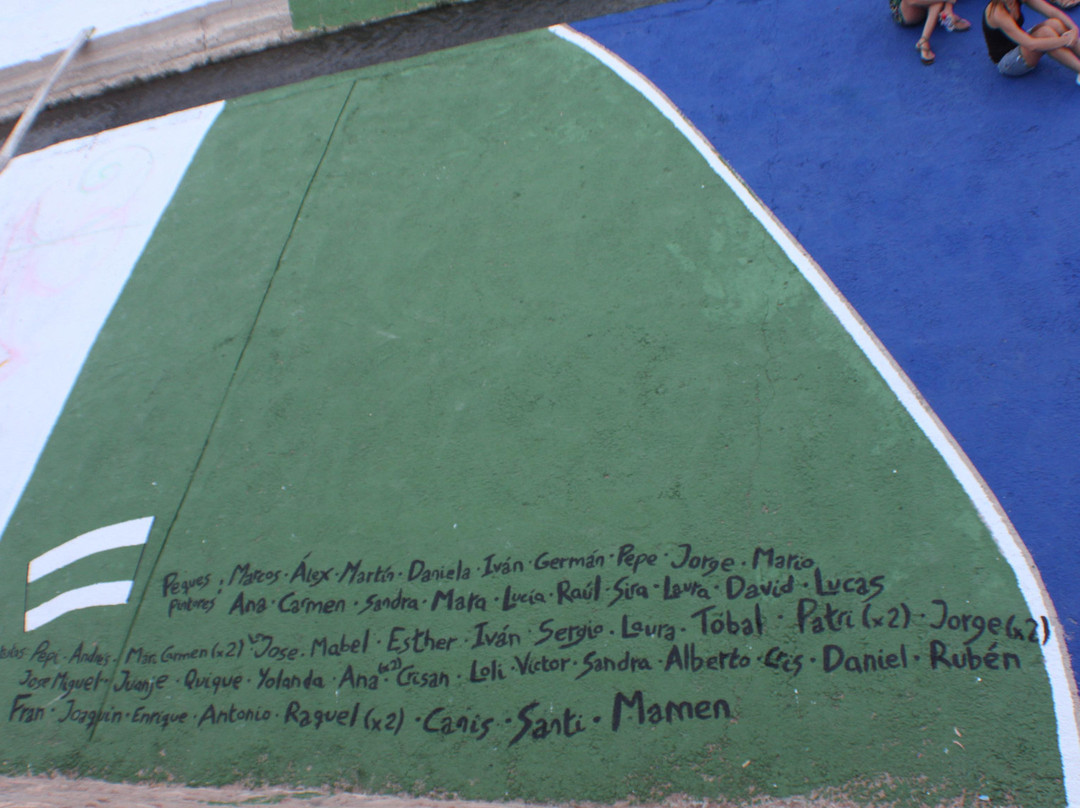 Peques : Marcos · Álex · Martín · Daniela · Iván · Germán · Pepe · Jorge · Mario
pintores Ana · Carmen · Sandra · Mara · Lucía · Raúl · Sira · Laura · David · Lucas
Pepi · Andrés · Mar · Carmen (x2) · Jose · Mabel · Esther · Iván · Sergio · Laura · Tóbal · Patri (x2) · Jorge (x2)
Jose Miguel · Juanje · Quique · Yolanda · Ana (x2) · Crisan · Loli · Víctor · Sandra · Alberto · Cris · Daniel · Rubén
Fran · Joaquin · Enrique · Antonio · Raquel (x2) · Canis · Santi · Mamen